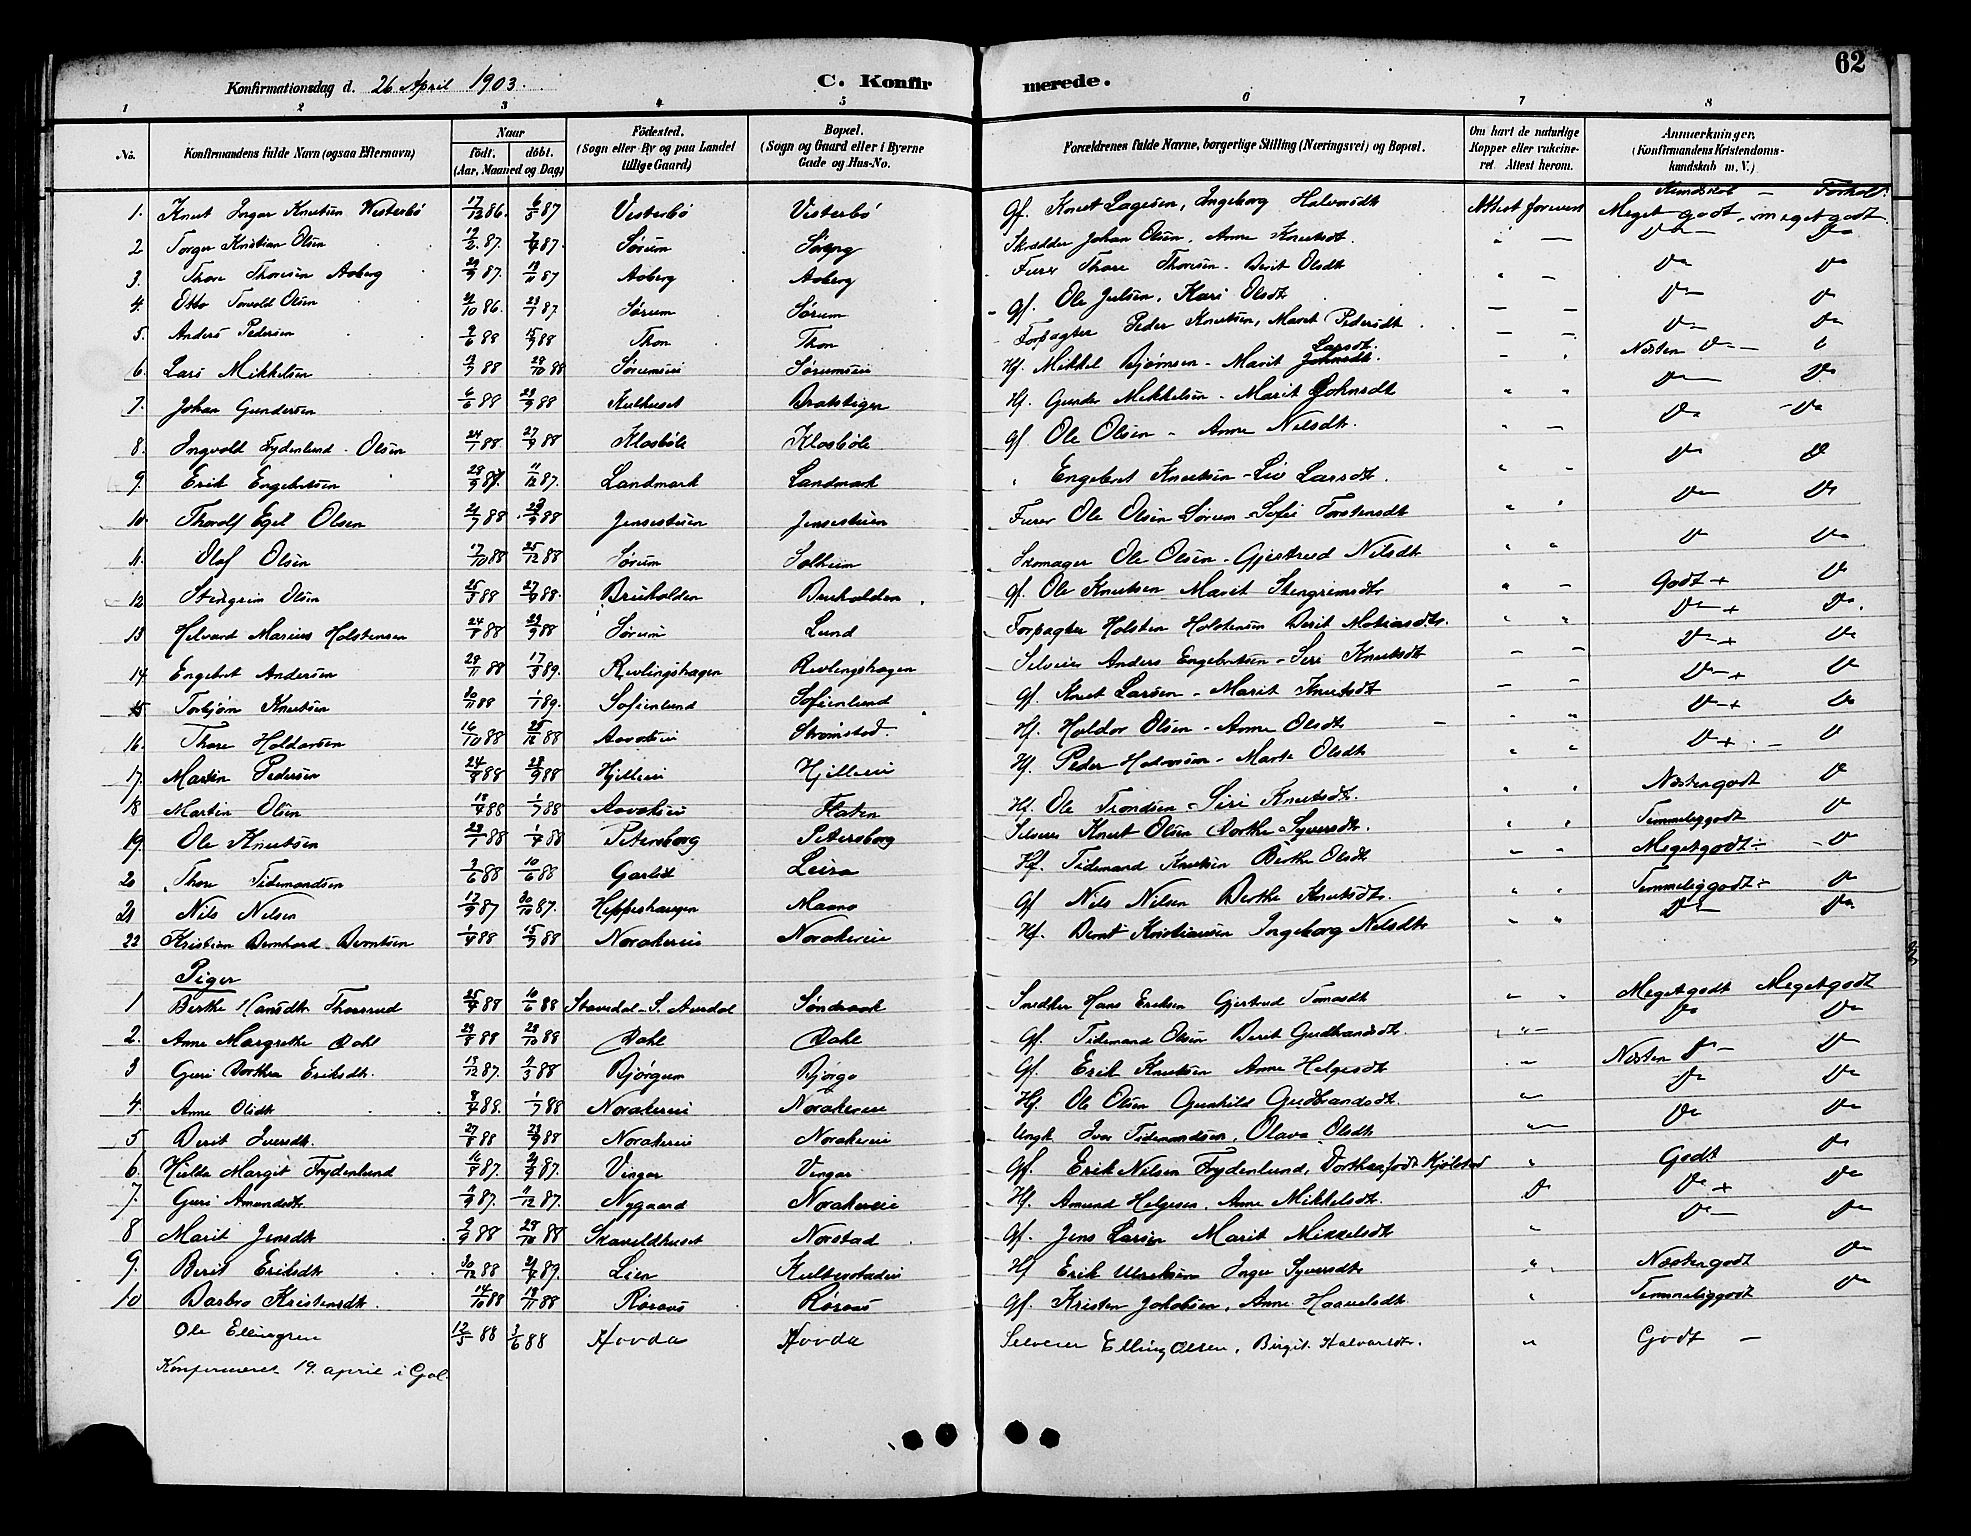 62
Konfirmationsdag d. 26 April 1903.
C. Konfirmerede.
1 2 3 4 5 6 7 8
No.
Konfirmandens fulde Navn (ogsaa Efternavn)
Naar
født. døbt.
(Aar, Maaned og Dag)
Fødested.
(Sogn eller By og paa Landet tillige Gaard)
Bopæl.
(Sogn og Gaard eller i Byerne Gade og Hus-No.
Forældrenes fulde Navne, borgerlige Stilling (Næringsvei) og Bopæl.
Om havt de naturlige Kopper eller vakcineret. Attest herom.
Anmærkninger.
(Konfirmandens Kristendomskundskab m. V.)
Kundskab — Forhold
1. Knut Ingar Knutsen Westerbø 17/12 86. 6/3 87 Vesterbø Vesterbø Gf. Knut Lagesen, Ingeborg Halvordt Attest forevist Meget godt, meget godt
2 Torger Kristian Olsen 87. 87. Sørum Skrædder Johan Olsen, Anne Knutsdt. Do Do
3. Thore Thoresen Aaberg 87. 87 Aaberg Aaberg Furer Thore Thoresen - Berit Olsdt Do Do
4. Otto Torvald Olsen 86. 87. Sørum Sørum Gf. Ole Julsen, Kari Olsdt Do Do
5. Anders Pedersen 88 88 Thon Thon Forpagter Peder Knutsen, Marit Pedersdt Do Do
6. Lars Mikkelsen 88 88 Sørumseie Sørumseie Hf. Mikkel Bjørnsen - Marit Larsdt. Næsten Do
7. Johan Gundersen 6/6 88 88 Kulhuset Bratstigen Hf. Gunder Mikkelsen - Marit Johnsdt Do Do
8. Ingvold Frydenlund - Olsen 24/7 88 27/9 88 Klosbøle Klosbøle Gf. Ole Olsen - Anne Nilsdt. Do Do
9. Erik Engebretsen 87. 11/12 87. Landmark Landmark Engebret Knutsen - Liv Larsdt. Do Do
10. Thorolf Egil Olsen 88 88 Jensestuen Jensestuen Furer Ole Olsen Sørum - Sofie Torstensdt Do Do
11. Olaf Olsen 17/10 88 25/12 88 Sørum Solheim Skomager Ole Olsen - Gjertrud Nilsdt Do Do
12 Stengrim Olsen 88 27/9 88. Bruholden Bruholden Gf. Ole Knutsen Marit Stengrimsdtr Godt + Do
13 Helvard Marius Holstensen 88 88 Sørum Lund Forpagter Holsten Holstensen Berit Do + Do.
14. Engebret Andersen 88 17/3 89. Revlingshagen Revlingshagen Selveier Anders Engebretsen - Siri Knutsdt Do + Do
15 Torbjørn Knutsen 88 89. Sofienlund Sofienlund Gf. Knut Larsen - Marit Knutsdt Do + Do
16. Thore Haldorsen 16/10 88 88 Strømstad. Hf. Haldor Olsen - Anne Olsdt Do + Do
17. Martin Pedersen 88 88 Hjelleeie Hjelleeie Hf. Peder - Marte Olsdt Do + Do
18 Martin Olsen 88 1/7 88 Flaten Hf. Ole Trondsen - Siri Knutsdt. Næsten godt Do
19. Ole Knutsen 88 1/4 88 Petersborg Petersborg Selveier Knut Olsen Dorthe Syversdt. Temmelig godt Do
20 Thore Tidemandsen 88 10/6 88 Leira Hf. Tidemand Knutsen Berthe Olsdt Meget godt ÷ Do
21 Nils Nilsen 87 87. Gf Nils Nilsen Berthe Knutsdt. Temmelig godt ÷ Do
22 Kristian Bernhard Berntsen 1/4 88 15/9 88 Norakereie Norakereie Hf. Bernt Kristiansen Ingeborg Nilsdt Do Do
Piger
1 Berthe Hansdt Thorsrud 25/4 88 88 - S. Aurdal Søndraak Snedker Hans Eriksen Gjertrud Tomasdt Meget godt Meget godt
2. Anne Margrethe Dahl 88 88 Dahl Dahl Gf. Tidemand Olsen Berit Gudbrandsdt. Do Do
3 Guri Dorthea Eriksdt. 13/12 87. 88 Bjørgum Bjørgo Gf. Erik Knutsen Anne Helgesdt Næsten Do Do
4. Anne Olsdt 88. 1/7 88 Norakereie Norakereie Hf. Ole Olsen Gunhild Gudbrandsdt. Do Do
5 Berit Iversdt. 88 88 Norakereie Norakereie Ungk Iver Tidemandsen, Olava Olsdt Do Do
6. Hilda Margit Frydenlund 87. 87. Vingar Vingar Gf. Erik Nilsen Frydenlund, Dorthea født Kjølstad Godt Do
7. Guri Amundsdt. 87. 11/12 87. Nygaard Norakereie Hf. Amund Helgesen, Anne Mikkelsdt. Do + Do
8 Marit Jensdt 88 88 Skaveldhuset Norstad Gf. Jens Larsen Marit Mikkelsdt Do Do
9. Berit Eriksdt 30/12 88 89. Lien Hf Erik Ulriksen Inger Syversdtr Næsten godt Do
10 Barbro Kristensdt. 14/10 88 18/11 88 Røraas Røraas Gf. Kristen Johansen, Anne Haavelsdt Temmelig godt Do
Ole Ellingsen 12/5 88 3/6 88 Hovda Hovda Selveier Elling Olsen, Birgit Halvorsdtr. Godt —
Konfirmeret 19. april i Gol.